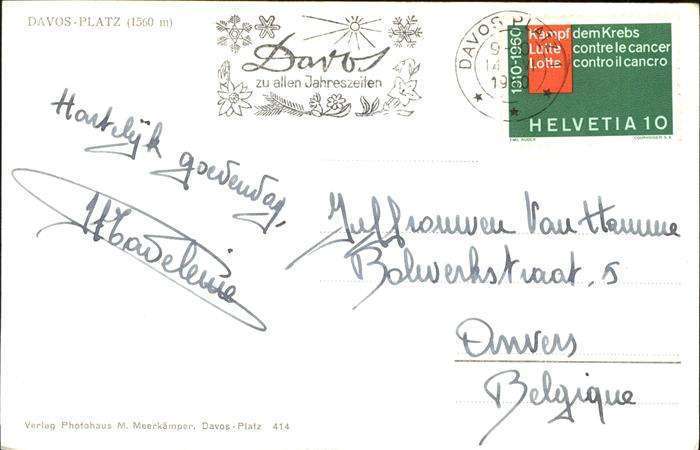 DAVOS-PLATZ (1560 m)
Davos
zu allen Jahreszeiten
DAVOS PLATZ
1910-1960
Kampf dem Krebs
Lutte contre le cancer
Lotta contro il cancro
HELVETIA 10
COURVOISIER S.A.
Hartelijk goedendag,
Madeleine
Juffrouwen Van Hamme
Bolwerkstraat, 5
Anvers
Belgique
Verlag Photohaus M. Meerkämper, Davos-Platz 414